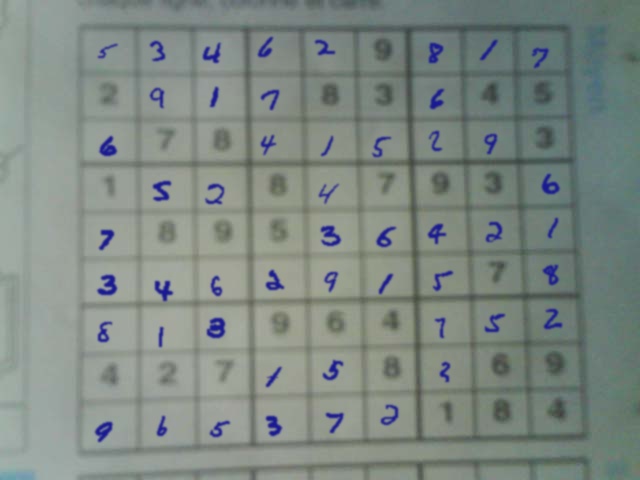 chaque ligne, colonne et carré.
Moyen
5 3 4 6 2 9 8 1 7
2 9 1 7 8 3 6 4 5
6 7 8 4 1 5 2 9 3
1 5 2 8 4 7 9 3 6
7 8 9 5 3 6 4 2 1
3 4 6 2 9 1 5 7 8
8 1 3 9 6 4 7 5 2
4 2 7 1 5 8 3 6 9
9 6 5 3 7 2 1 8 4